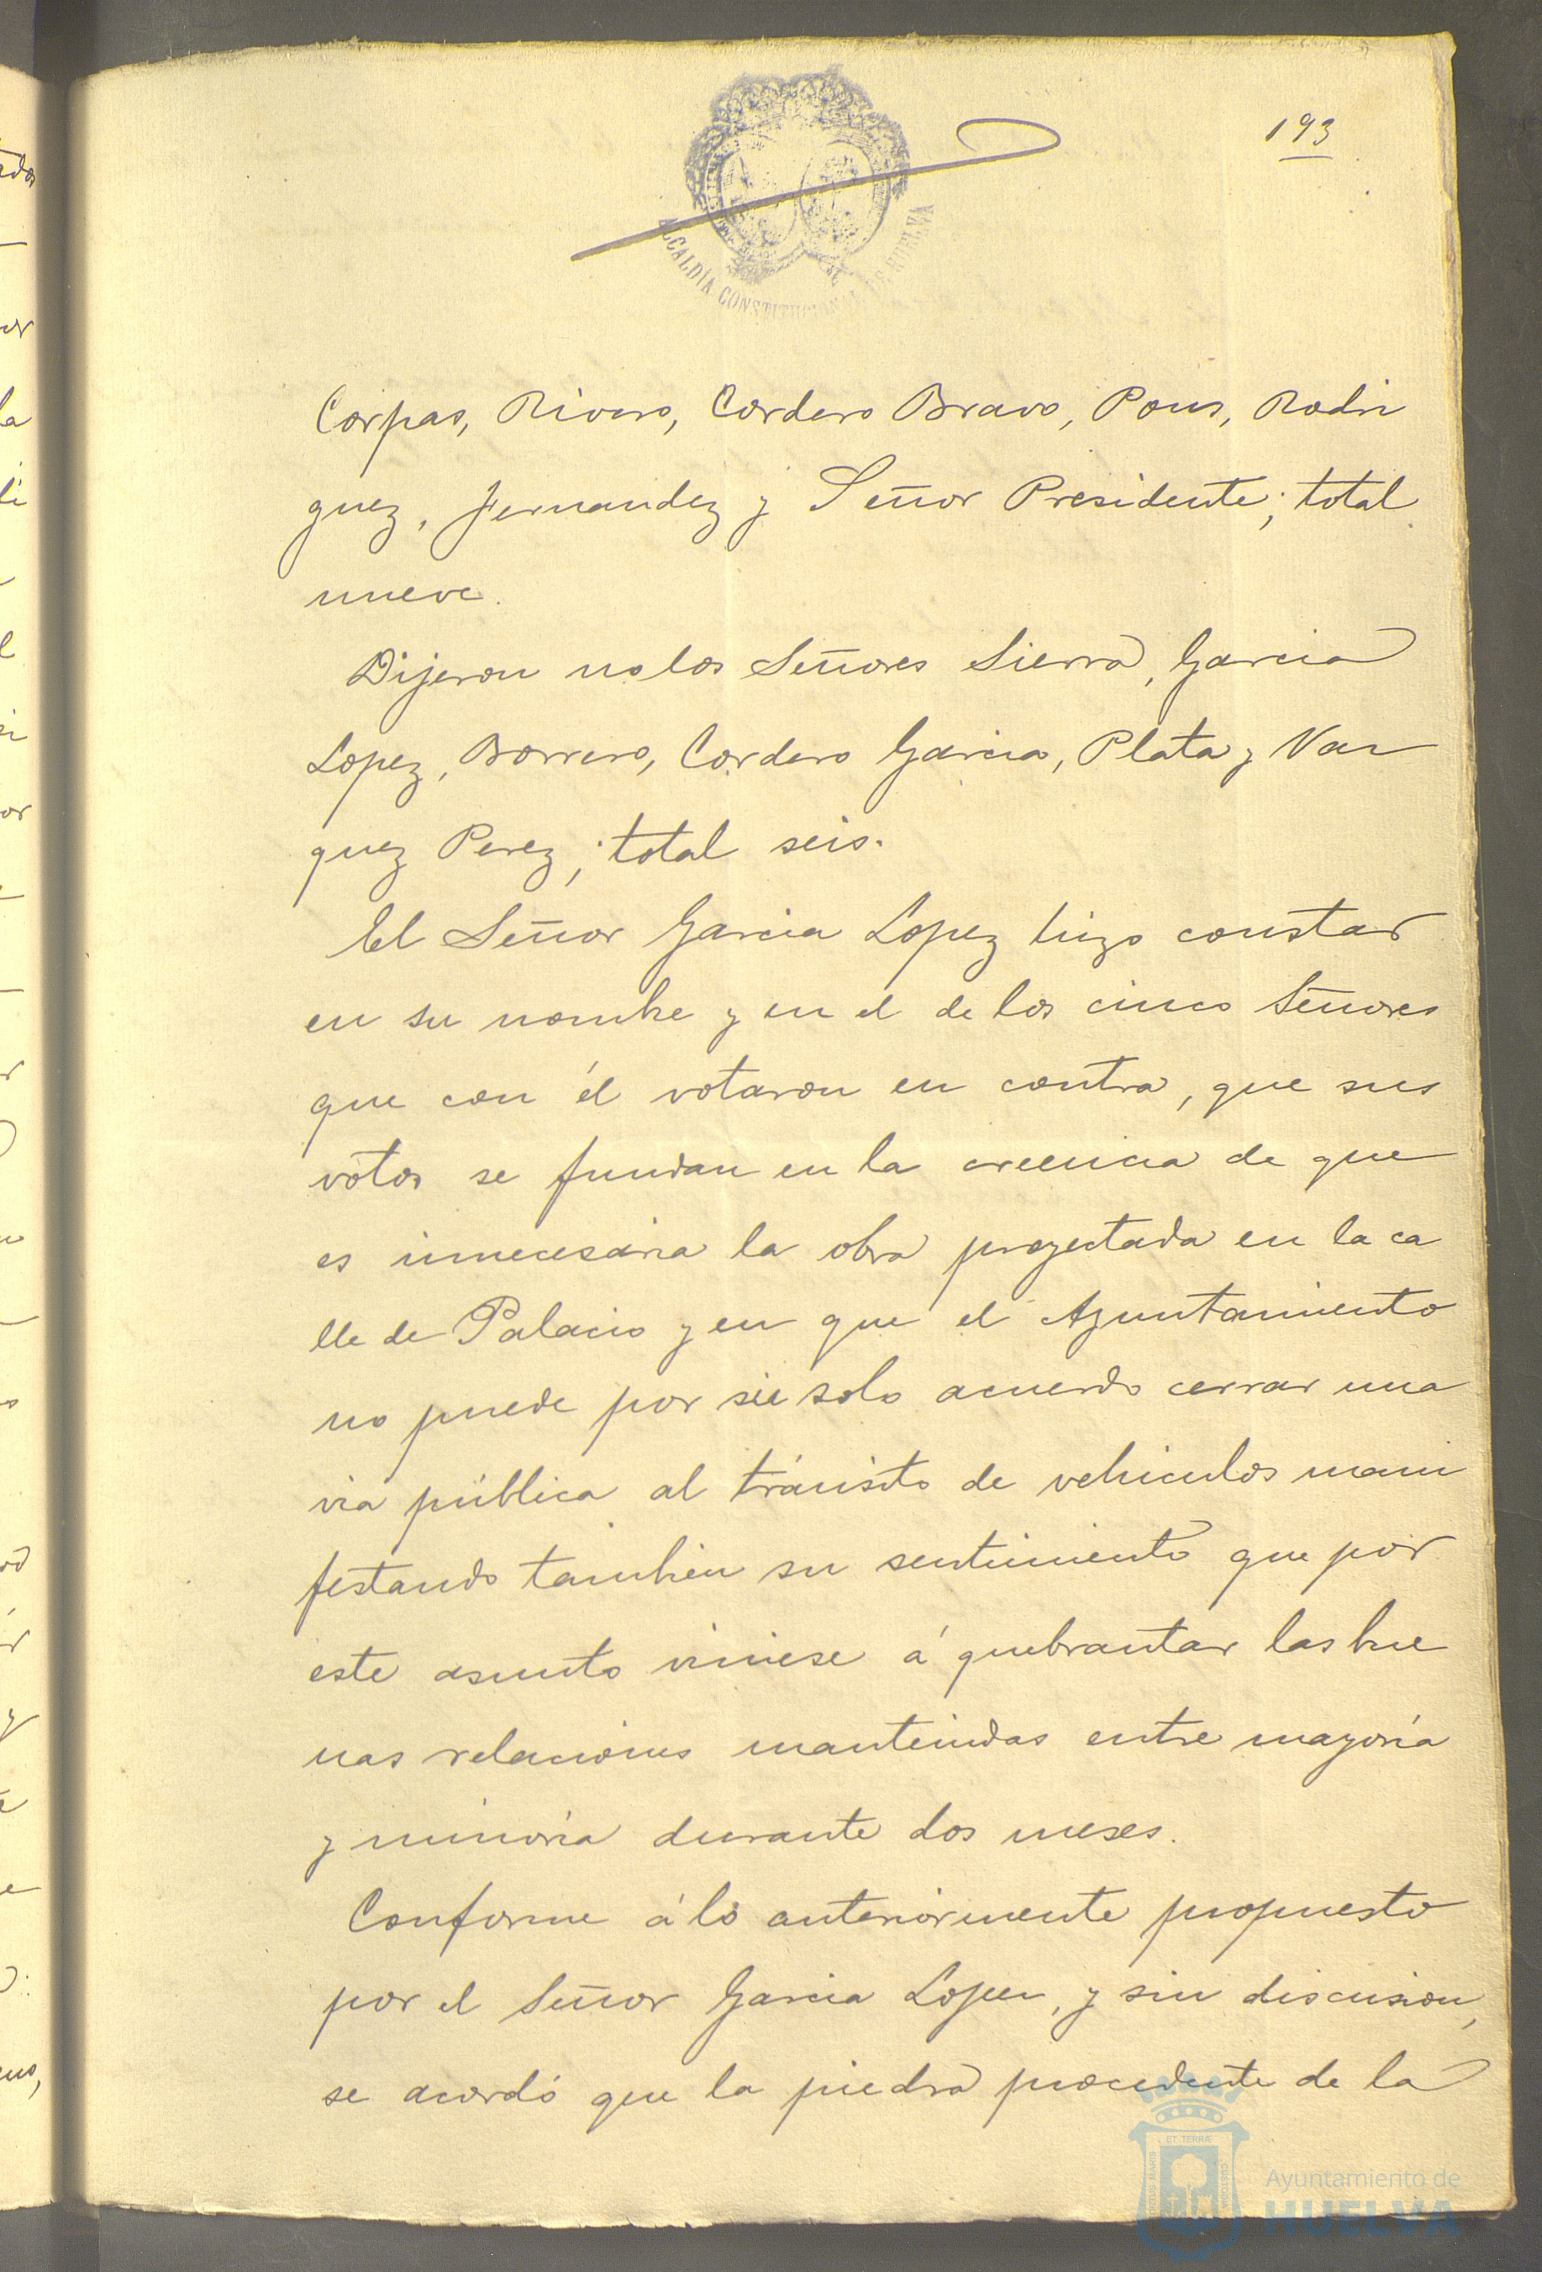 193
ALCALDÍA CONSTITUCIONAL DE HUELVA
Corpas, Rivero, Cordero Bravo, Pons, Rodri
guez, Fernandez y Señor Presidente; total
nueve.
Dijeron no los Señores Sierra, Garcia
Lopez, Borrero, Cordero Garcia, Plata y Vaz
quez Perez; total seis.
El Señor Garcia Lopez hizo constar
en su nombre y en el de los cinco Señores
que con él votaron en contra, que sus
votos se fundan en la creencia de que
es innecesaria la obra proyectada en la ca
lle de Palacio y en que el Ayuntamiento
no puede por su solo acuerdo cerrar una
via pública al tránsito de vehiculos mani
festando tambien su sentimiento que por
este asunto viniese á quebrantar las bue
nas relaciones mantenidas entre mayoría
y minoría durante dos meses.
Conforme á lo anteriormente propuesto
por el Señor Garcia Lopez, y sin discusion,
se acordó que la piedra procedente de la
ET TERRA
Ayuntamiento de
HUELVA